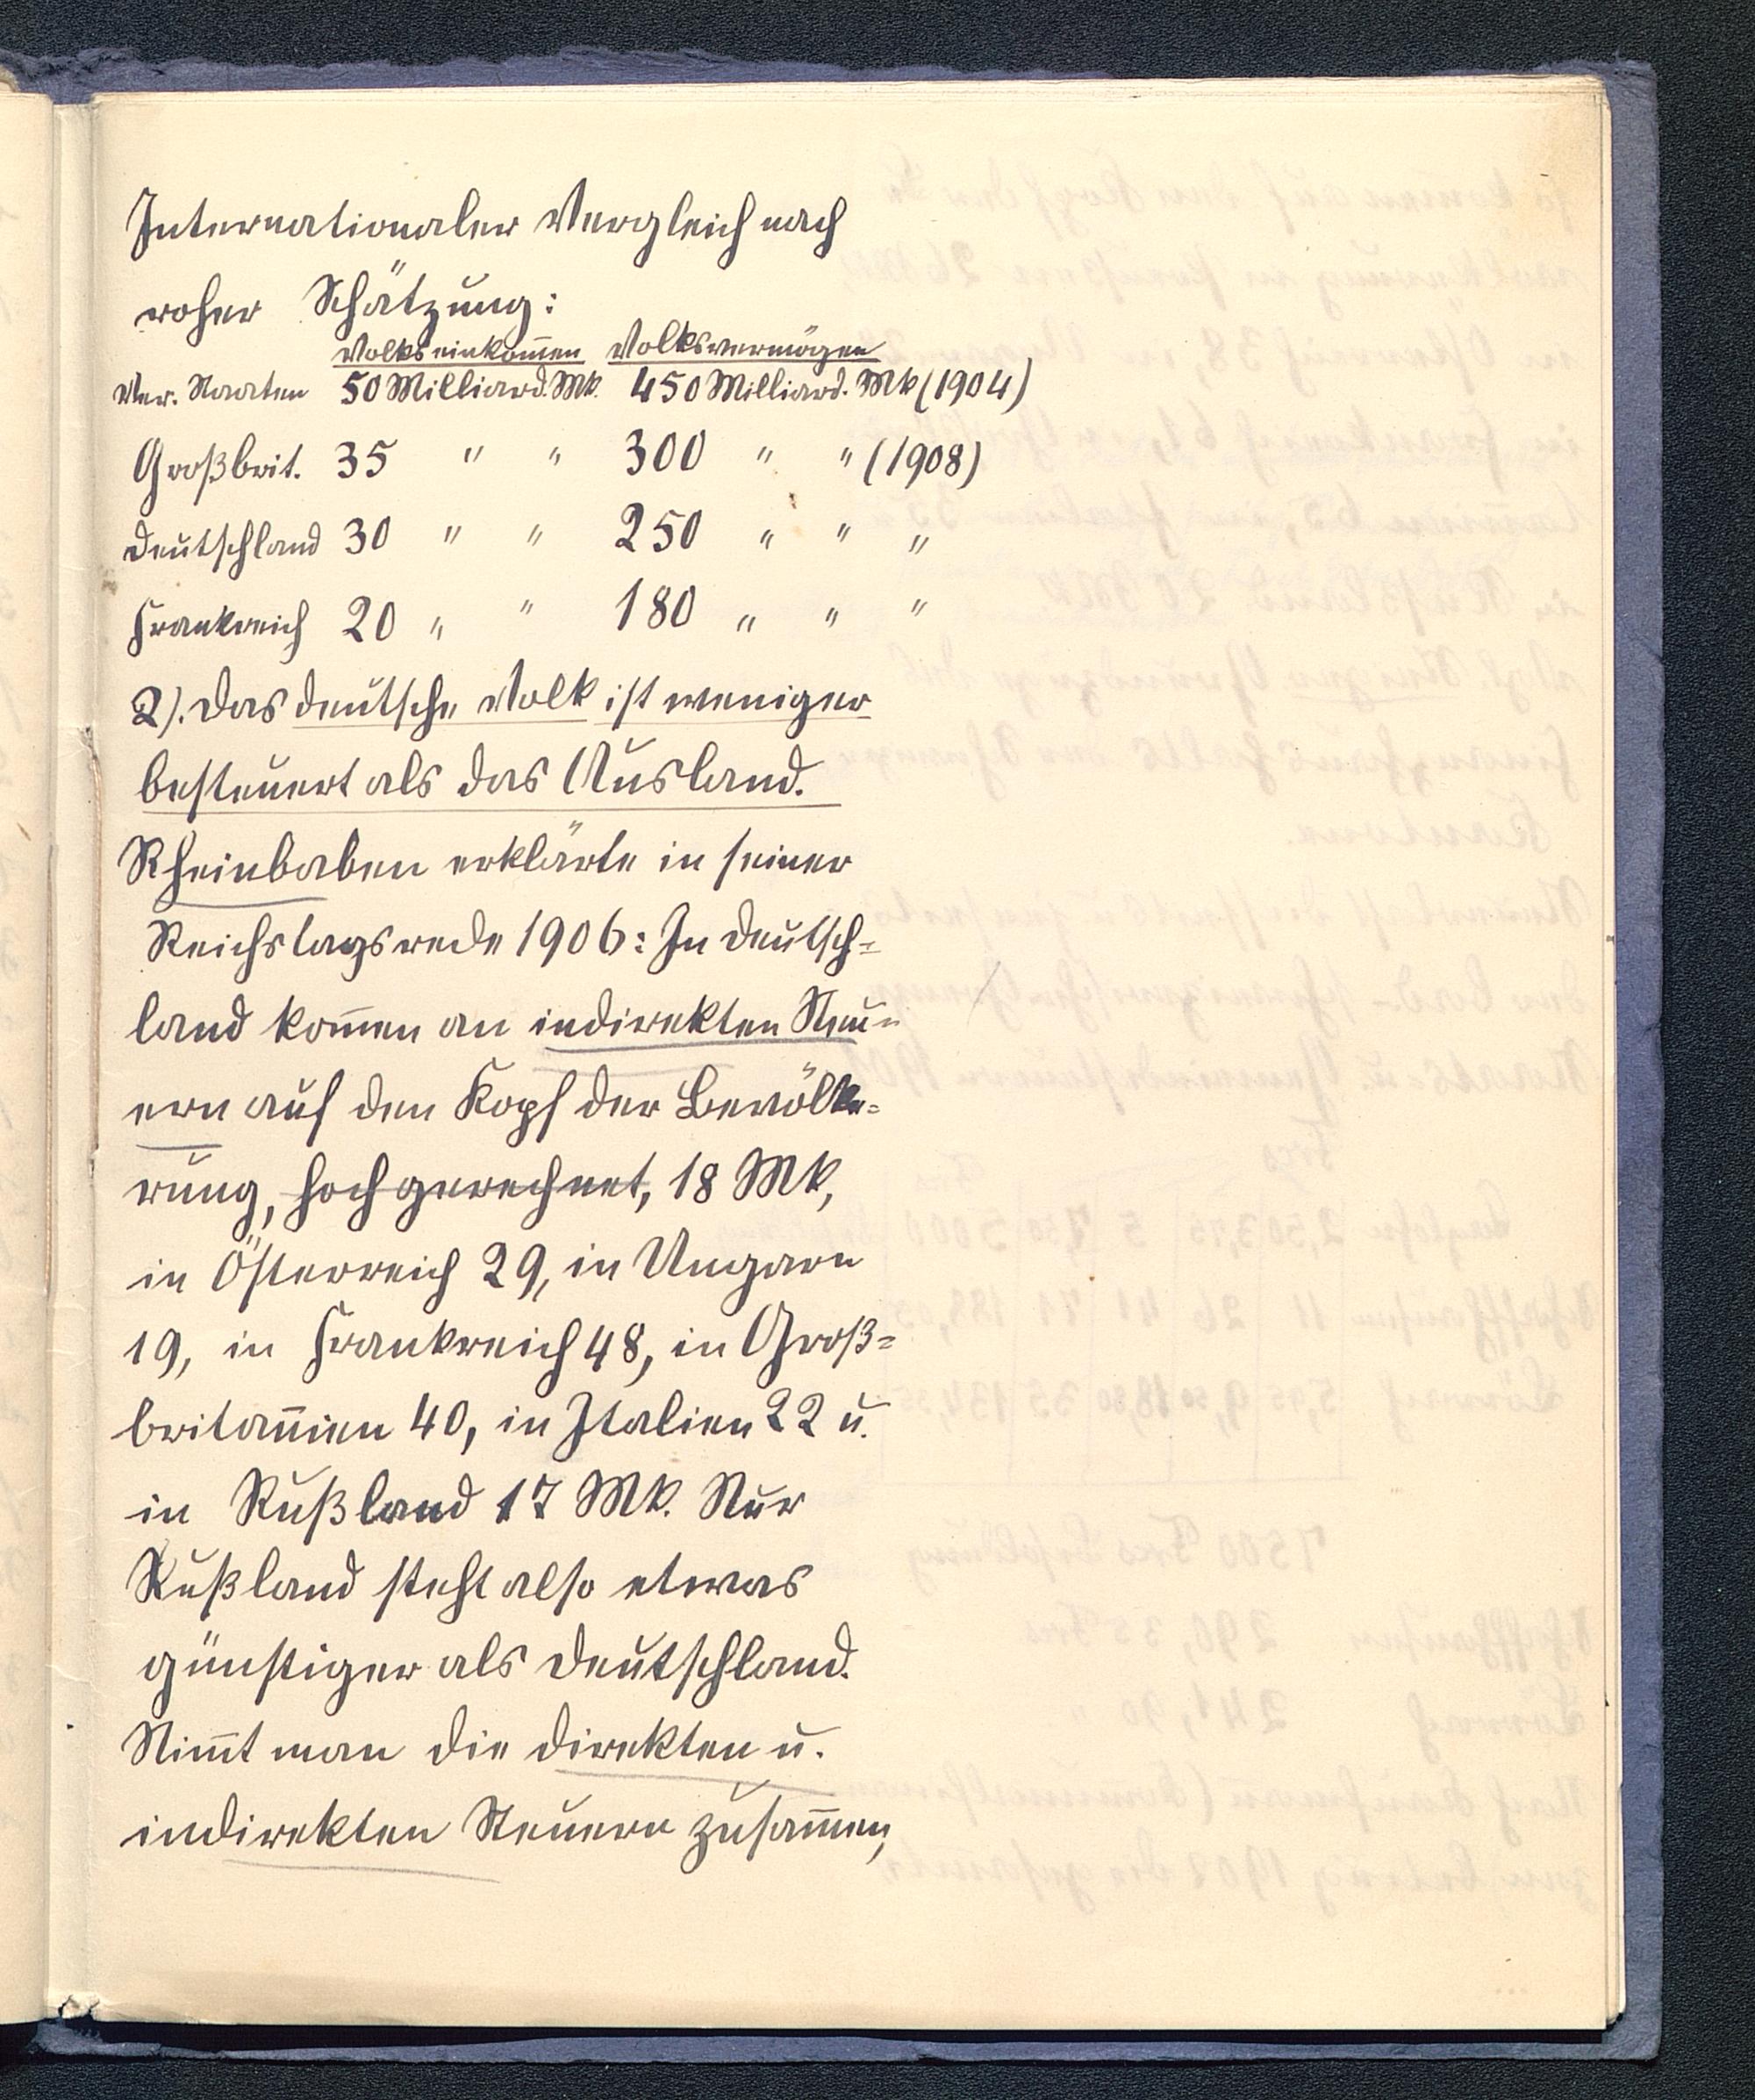 Internationaler Vergleich nach
roher Schätzung:
Volkseinkom̅en Volksvermögen
Ver. Staaten 50 Milliard. Mk. 450 Milliard. Mk (1904)
Großbrit. 35 " " 300 " " (1908)
Deutschland 30 " " 250 " " "
Frankreich 20 " " 180 " " "
2). Das deutsche Volk ist weniger
besteuert als das Ausland.
Rheinbaben erklärte in seiner
Reichstagsrede 1906: In Deutsch=
land kom̅en an indirekten Steu=
ern auf den Kopf der Bevölke=
rung, hoch gerechnet, 18 Mk,
in Österreich 29, in Ungarn
19, in Frankreich 48, in Groß=
britan̅ien 40, in Italien 22 u.
in Rußland 17 Mk. Nur
Rußland steht also etwas
günstiger als Deutschland.
Nim̅t man die direkten u.
indirekten Steuern zusam̅en,